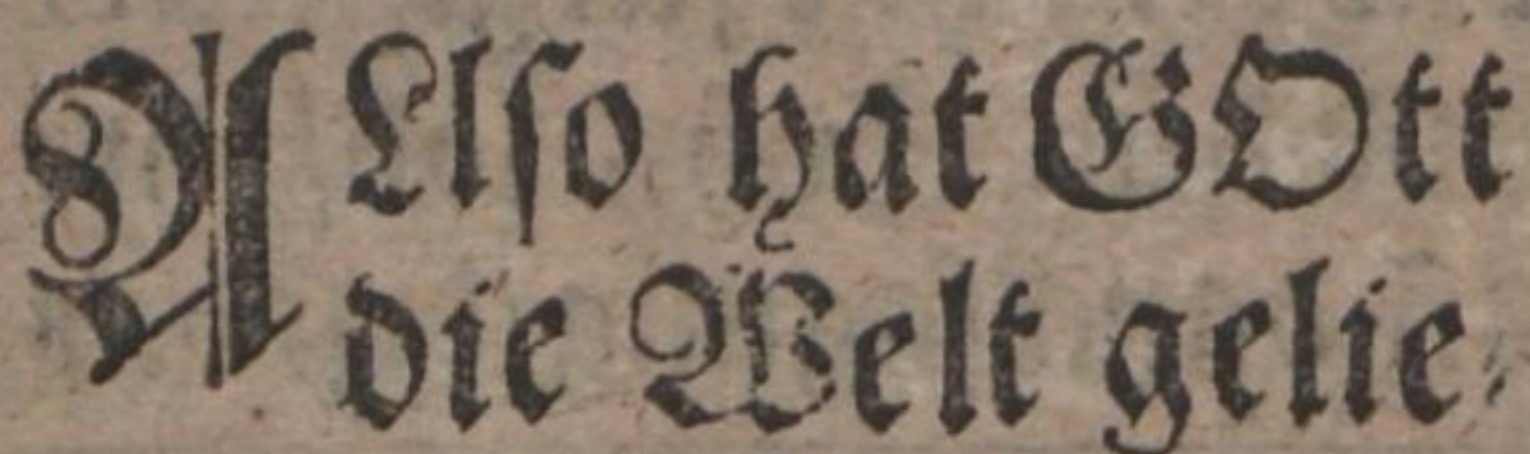 ALlſo hat GOtt
die Welt gelie-